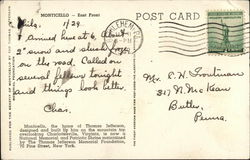 MONTICELLO — East Front
Phila. 1/29.
Arrived here at 6. About
2" snow and sleet
on the road. Called on
several fellows tonight
and things look better.
Chas.
Monticello, the home of Thomas Jefferson,
designed and built by him on the mountain top
overlooking Charlottesville, Virginia, is now a
National Memorial and Patriotic Shrine maintained
by The Thomas Jefferson Memorial Foundation,
70 Pine Street, New York.
Mr. C. N. Troutman
317 N. McKean
Butler,
Penna.